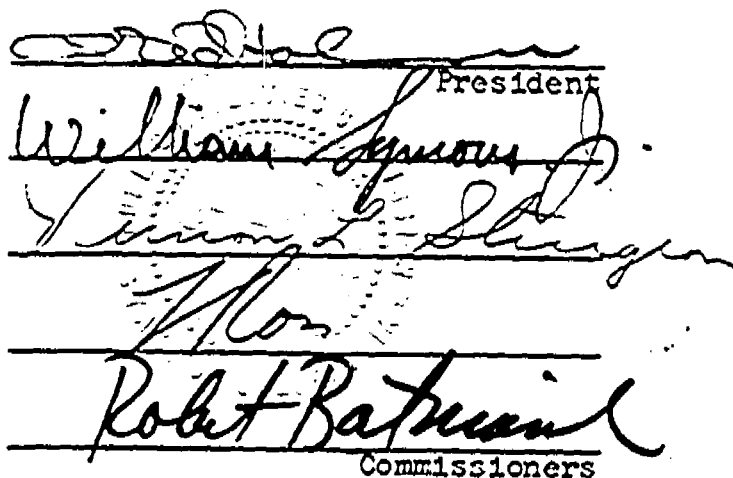 President
William Symons Jr.
Vernon L Sturgeon
Robert Batinovich
Commissioners